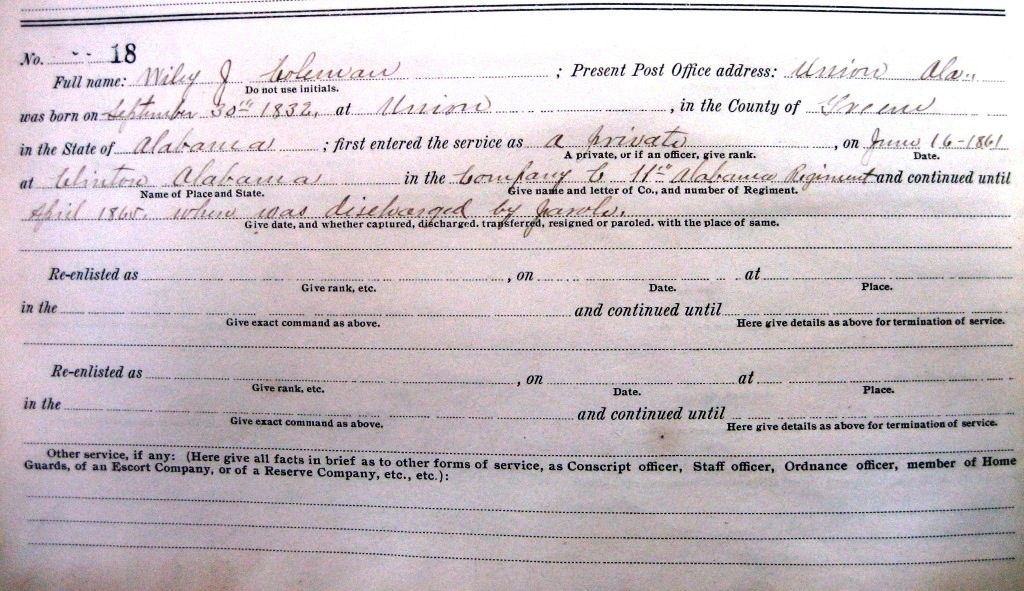 No. - - 18
Full name: Wiley J Coleman ; Present Post Office address: Union Ala..
Do not use initials.
was born on September 30th 1832, at Union , in the County of Greene
in the State of Alabama ; first entered the service as a private , on June 16-1861
A private, or if an officer, give rank. Date.
at Clinton Alabama in the Company C 11th Alabama Regiment and continued until
Name of Place and State. Give name and letter of Co., and number of Regiment.
April 1865. when was discharged by parole.
Give date, and whether captured, discharged. transferred, resigned or paroled. with the place of same.
Re-enlisted as , on at
Give rank, etc. Date. Place.
in the and continued until
Give exact command as above. Here give details as above for termination of service.
Re-enlisted as , on at
Give rank, etc. Date. Place.
in the and continued until
Give exact command as above. Here give details as above for termination of service.
Other service, if any: (Here give all facts in brief as to other forms of service, as Conscript officer, Staff officer, Ordnance officer, member of Home
Guards, of an Escort Company, or of a Reserve Company, etc., etc.):